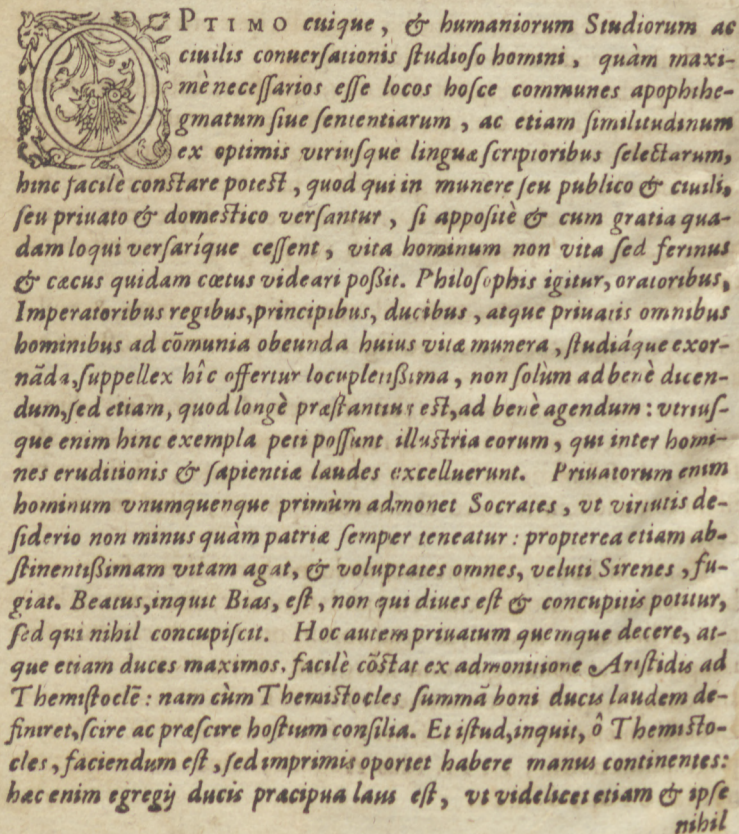 OPTIMO cuique, & humaniorum Studiorum ac
ciuilis conuersationis studioso homini, quàm maxi-
mè necessarios esse locos hosce communes apophthe-
gmatum siue sententiarum, ac etiam similitudinum
ex optimis vtriusque linguæ scriptoribus selectarum,
hinc facilè constare potest, quod qui in munere seu publico & ciuili,
seu priuato & domestico versantur, si appositè & cum gratia qua-
dam loqui versaríque cessent, vita hominum non vita sed ferinus
& cæcus quidam cœtus videari poßit. Philosophis igitur, oratoribus,
Imperatoribus regibus, principibus, ducibus, atque priuatis omnibus
hominibus ad cõmunia obeunda huius vitæ munera, studiáque exor-
nãda, suppellex hîc offertur locupletißima, non solùm ad benè dicen-
dum, sed etiam, quod longè præstantius est, ad benè agendum: vtrius-
que enim hinc exempla peti possunt illustria eorum, qui inter homi-
nes eruditionis & sapientiæ laudes excelluerunt. Priuatorum enim
hominum vnumquenque primùm admonet Socrates, vt virtutis de-
siderio non minus quàm patriæ semper teneatur: propterea etiam ab-
stinentißimam vitam agat, & voluptates omnes, veluti Sirenes, fu-
giat. Beatus, inquit Bias, est, non qui diues est & concupitis potitur,
sed qui nihil concupiscit. Hoc autem priuatum quemque decere, at-
que etiam duces maximos, facilè cõstat ex admonitione Aristidis ad
Themistoclẽ: nam cùm Themistocles summã boni ducis laudem de-
finiret, scire ac præscire hostium consilia. Et istud, inquit, ô Themisto-
cles, faciendum est, sed imprimis oportet habere manus continentes:
hæc enim egregij ducis præcipua laus est, vt videlicet etiam & ipse
nihil